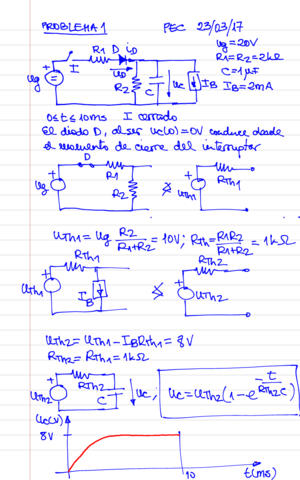 PROBLEMA 1 PEC 23/03/17
I R1 D iD
ug = 20V
R1 = R2 = 2kΩ
C = 1μF
IB = 2mA
ug uD R2 C uc IB
0 ≤ t ≤ 10ms I cerrado
El diodo D, al ser uc(0) = 0V conduce desde
el momento de cierre del interruptor
D R1 RTh1
ug R2 uTh1
uTh1 = ug R2/(R1+R2) = 10V; RTh = R1R2/(R1+R2) = 1kΩ
RTh1 RTh2
uTh1 IB uTh2
uTh2 = uTh1 - IB RTh1 = 8V
RTh2 = RTh1 = 1kΩ
uTh2 RTh2 C uc; uc = uTh2 (1 - e^(-t/(RTh2 C)))
uc(V)
8V
10 t(ms)